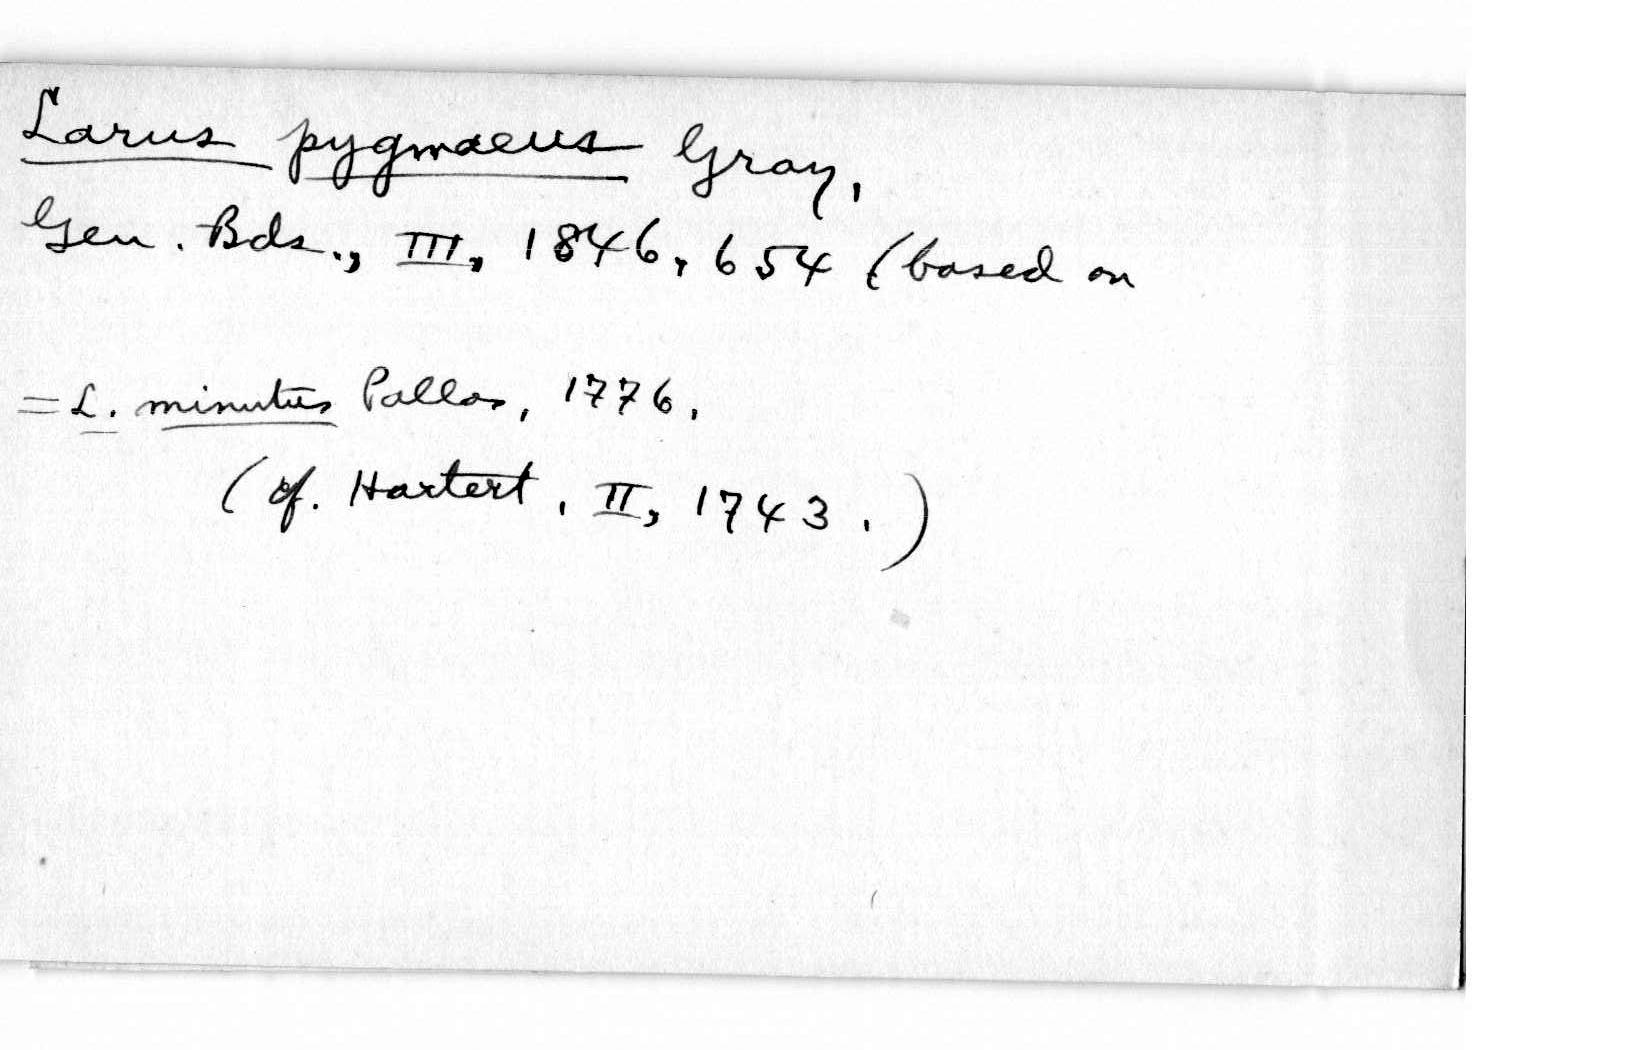 Larus pygmaeus Gray,
Gen. Bds., III, 1846, 654 (based on
= L. minutus Pallas, 1776.
(cf. Hartert, II, 1743.)